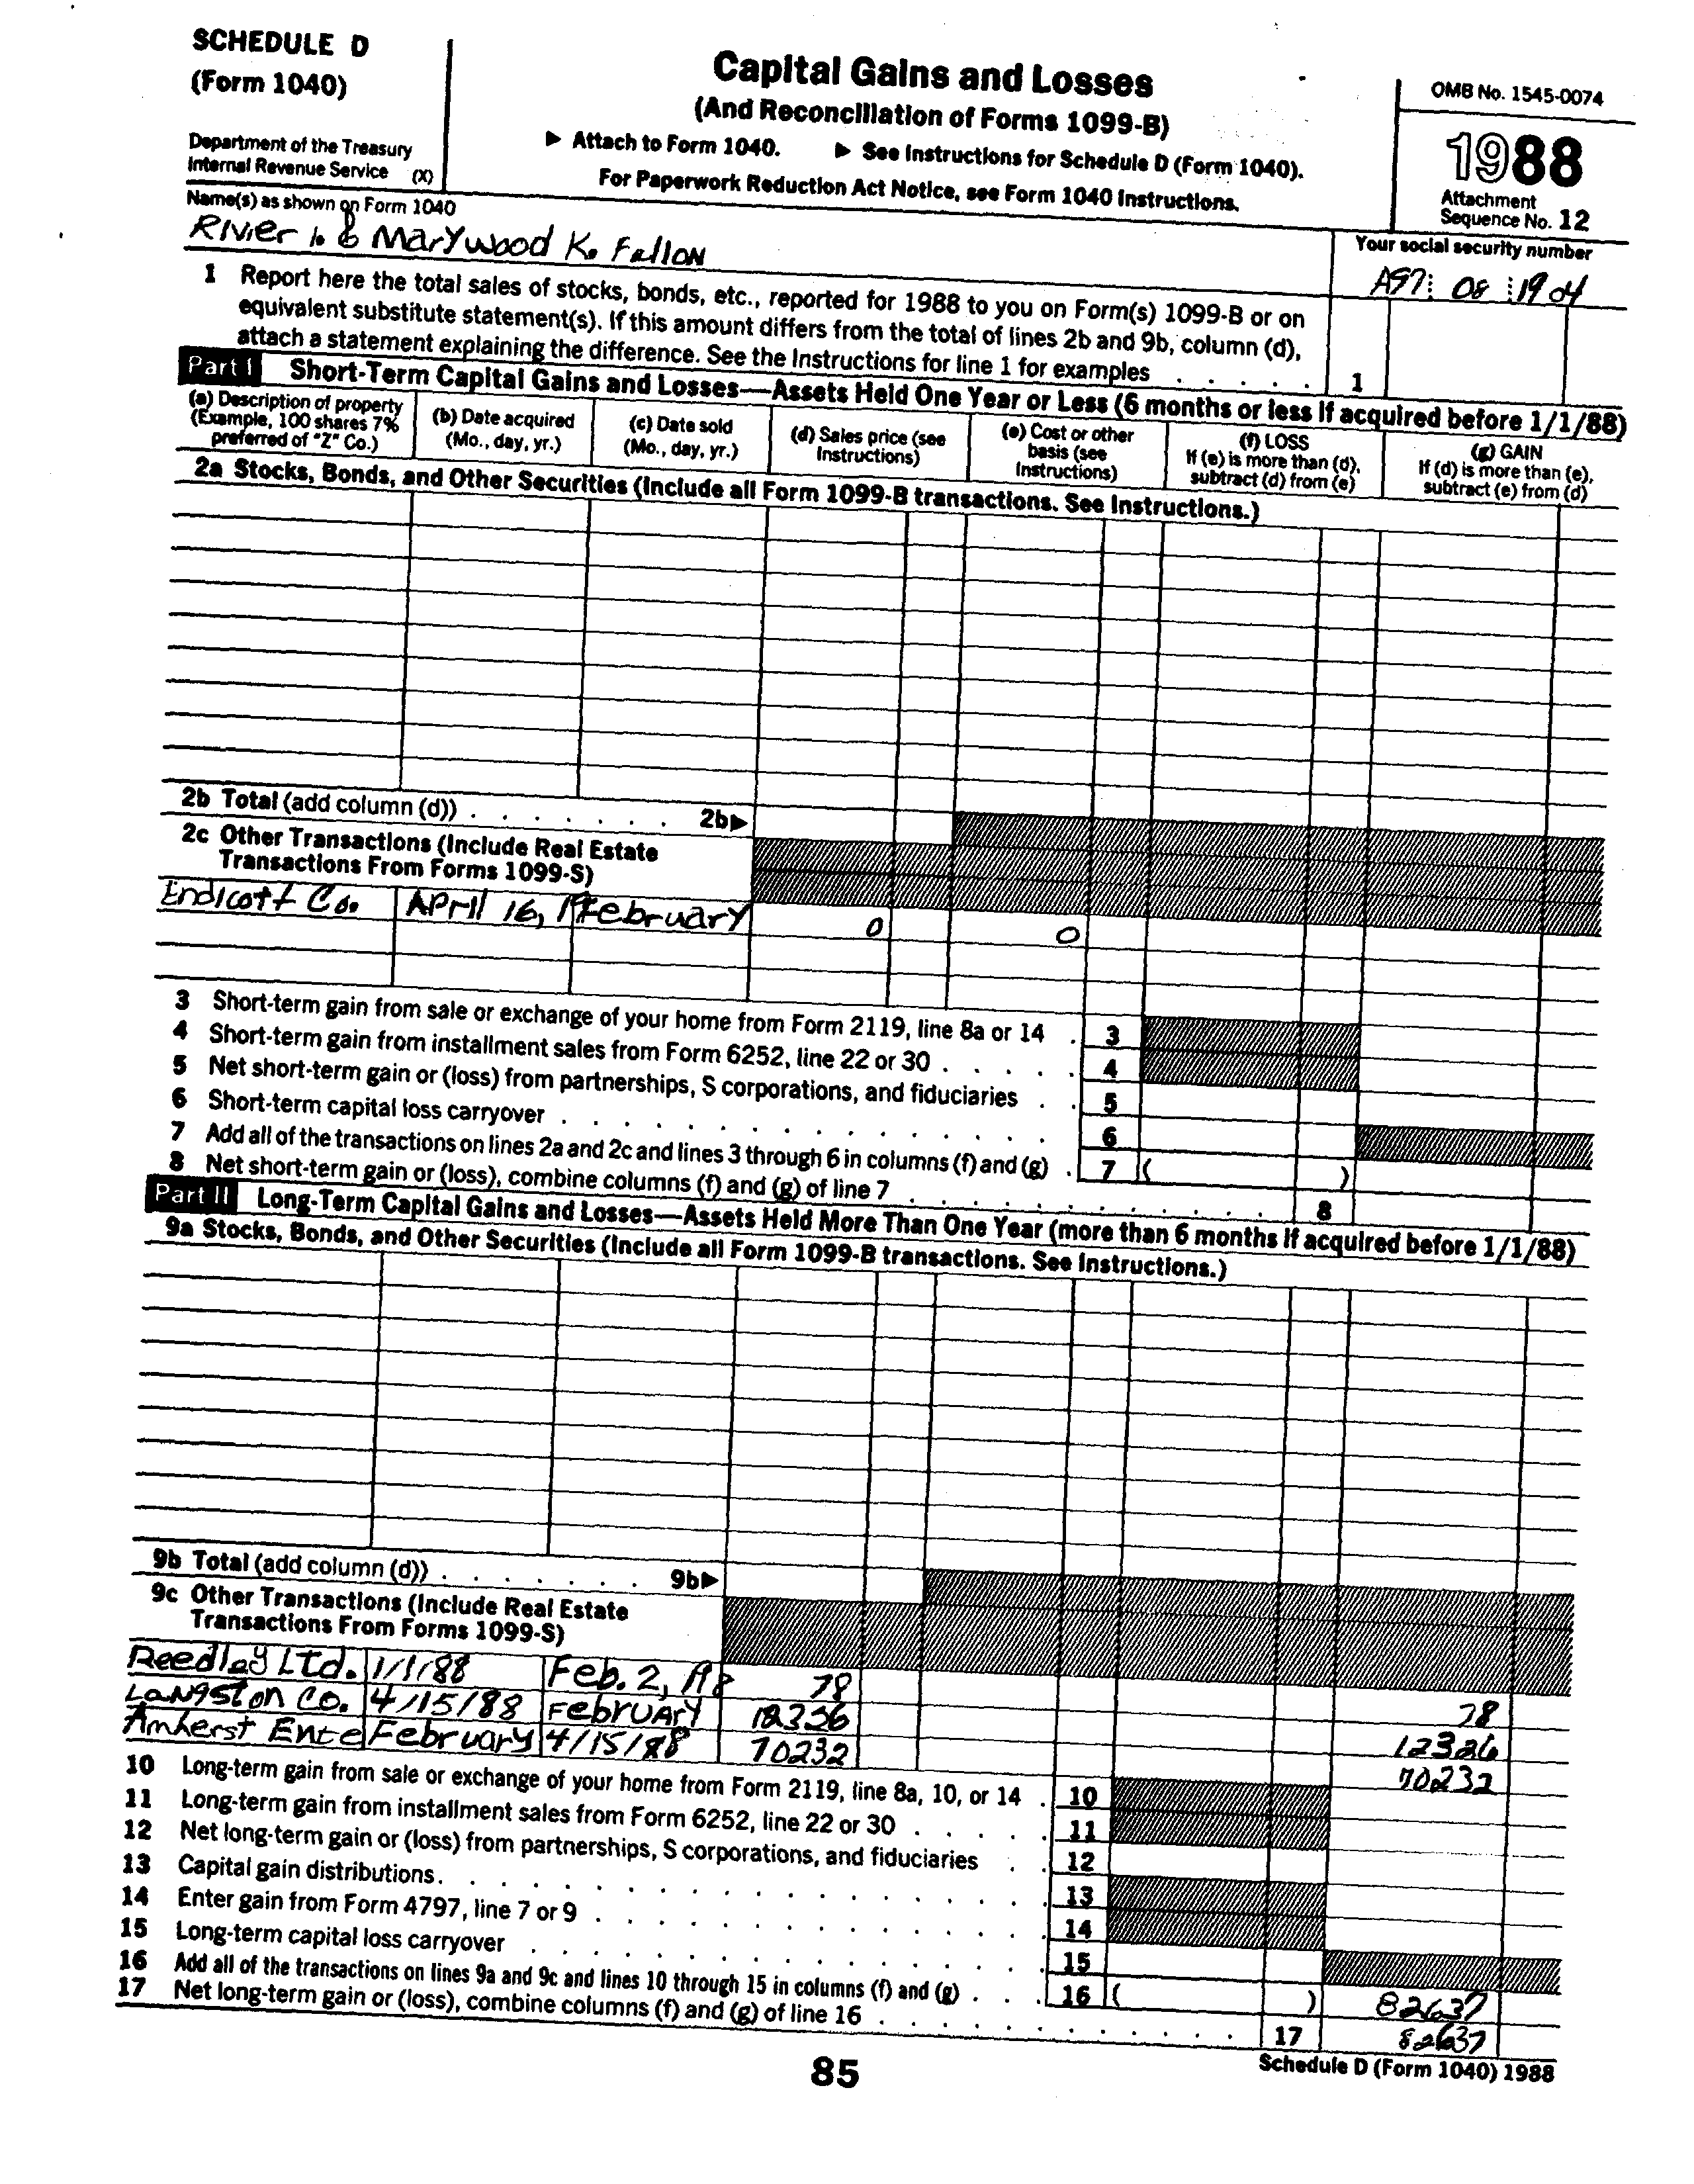 SCHEDULE D
(Form 1040)
Department of the Treasury
Internal Revenue Service (X)
Capital Gains and Losses
(And Reconciliation of Forms 1099-B)
▶ Attach to Form 1040. ▶ See Instructions for Schedule D (Form 1040).
For Paperwork Reduction Act Notice, see Form 1040 Instructions.
OMB No. 1545-0074
1988
Attachment
Sequence No. 12
Name(s) as shown on Form 1040
Rivier L. & Marywood K. Fallon
Your social security number
A97 08 1904
1 Report here the total sales of stocks, bonds, etc., reported for 1988 to you on Form(s) 1099-B or on
equivalent substitute statement(s). If this amount differs from the total of lines 2b and 9b, column (d),
attach a statement explaining the difference. See the Instructions for line 1 for examples . . . . . 1
Part I Short-Term Capital Gains and Losses—Assets Held One Year or Less (6 months or less if acquired before 1/1/88)
(a) Description of property
(Example, 100 shares 7%
preferred of "Z" Co.)
(b) Date acquired
(Mo., day, yr.)
(c) Date sold
(Mo., day, yr.)
(d) Sales price (see
Instructions)
(e) Cost or other
basis (see
Instructions)
(f) LOSS
If (e) is more than (d),
subtract (d) from (e)
(g) GAIN
If (d) is more than (e),
subtract (e) from (d)
2a Stocks, Bonds, and Other Securities (Include all Form 1099-B transactions. See Instructions.)
2b Total (add column (d)) . . . . . . . 2b▶
2c Other Transactions (Include Real Estate
Transactions From Forms 1099-S)
Endicott Co. April 16, 19 February 0 0
3 Short-term gain from sale or exchange of your home from Form 2119, line 8a or 14 . 3
4 Short-term gain from installment sales from Form 6252, line 22 or 30 . . . . . 4
5 Net short-term gain or (loss) from partnerships, S corporations, and fiduciaries . . 5
6 Short-term capital loss carryover . . . . . . . . . . . . . . 6
7 Add all of the transactions on lines 2a and 2c and lines 3 through 6 in columns (f) and (g) . 7 ( )
8 Net short-term gain or (loss), combine columns (f) and (g) of line 7 . . . . . . . . . . . 8
Part II Long-Term Capital Gains and Losses—Assets Held More Than One Year (more than 6 months if acquired before 1/1/88)
9a Stocks, Bonds, and Other Securities (Include all Form 1099-B transactions. See Instructions.)
9b Total (add column (d)) . . . . . . . 9b▶
9c Other Transactions (Include Real Estate
Transactions From Forms 1099-S)
Reedley Ltd. 1/1/88 Feb. 2, 78 78
Langston Co. 4/15/88 February
Amherst Ente February 4/15/88 70232 70232
10 Long-term gain from sale or exchange of your home from Form 2119, line 8a, 10, or 14 . 10
11 Long-term gain from installment sales from Form 6252, line 22 or 30 . . . . . 11
12 Net long-term gain or (loss) from partnerships, S corporations, and fiduciaries . . 12
13 Capital gain distributions. . . . . . . . . . . . . . . . . 13
14 Enter gain from Form 4797, line 7 or 9 . . . . . . . . . . . . . 14
15 Long-term capital loss carryover . . . . . . . . . . . . . . 15
16 Add all of the transactions on lines 9a and 9c and lines 10 through 15 in columns (f) and (g) . . . 16 ( ) 82637
17 Net long-term gain or (loss), combine columns (f) and (g) of line 16 . . . . . . . . . . . . 17 82637
85
Schedule D (Form 1040) 1988